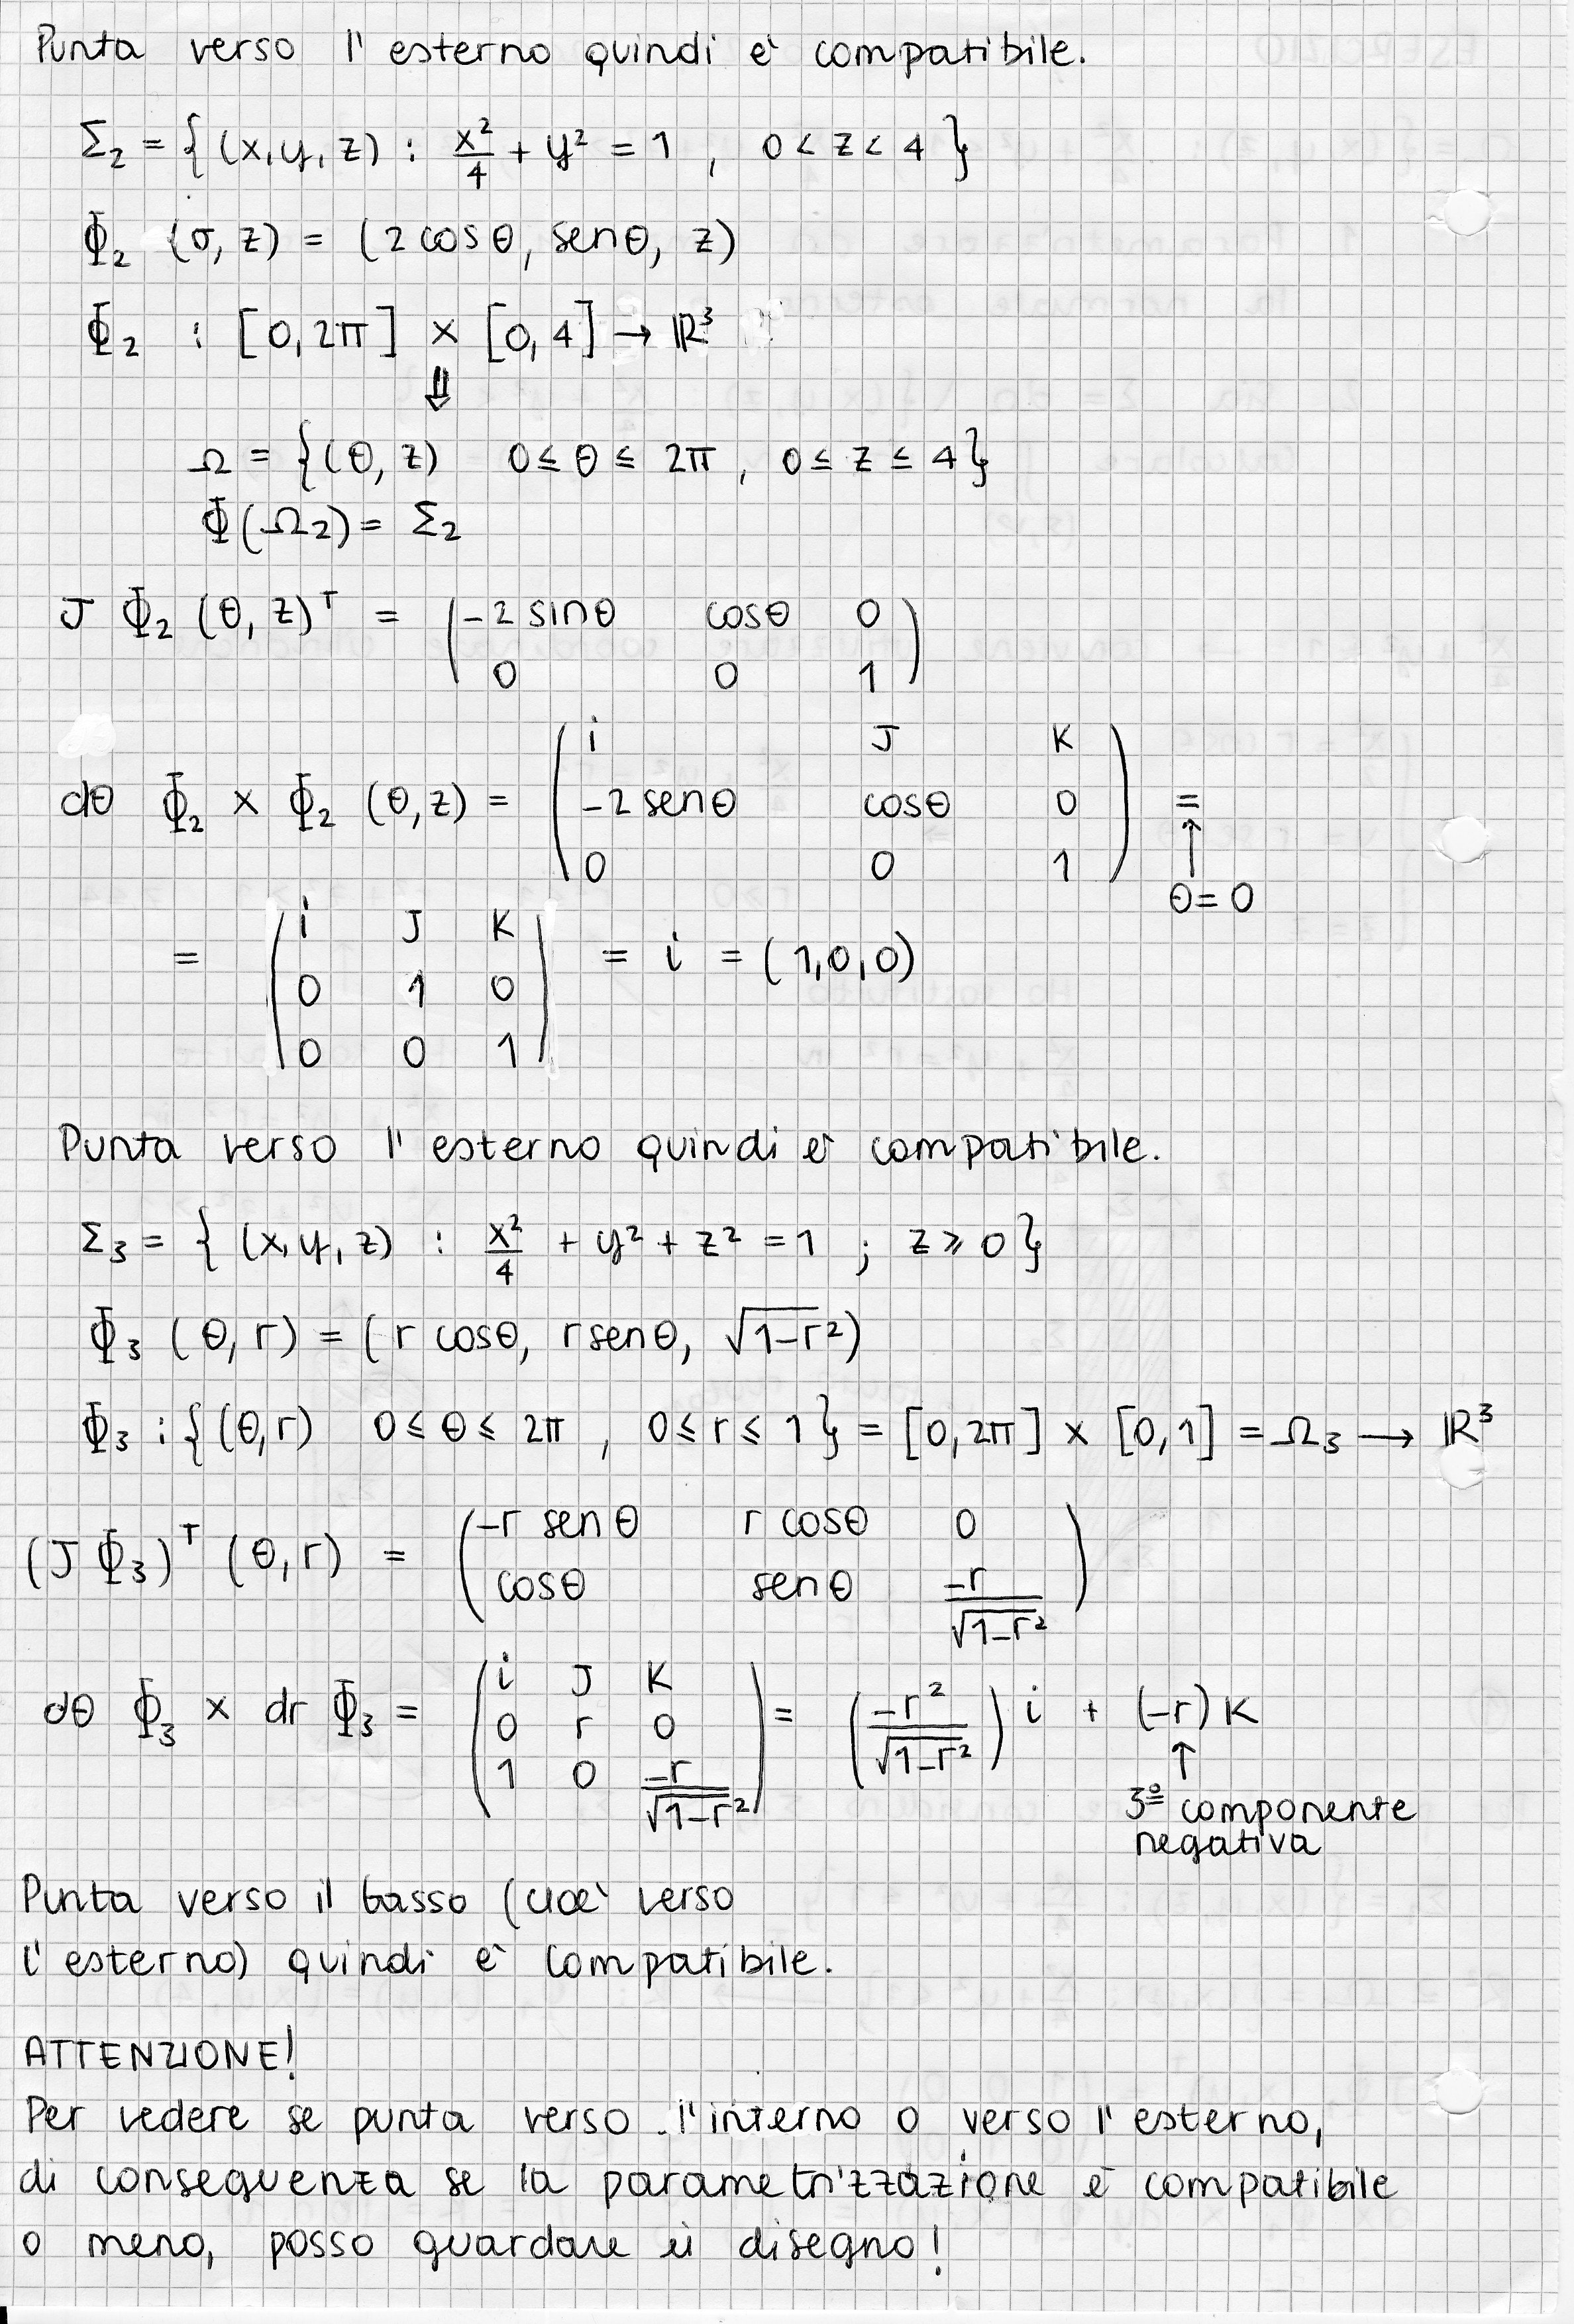 Punta verso l'esterno quindi è compatibile.
Σ₂ = { (x,y,z) : x²/4 + y² = 1 , 0 < z < 4 }
Φ₂ (σ, z) = (2 cosθ, senθ, z)
Φ₂ : [0,2π] × [0,4] → ℝ³
⇓
Ω = {(θ, z) 0 ≤ θ ≤ 2π , 0 ≤ z ≤ 4}
Φ(Ω₂) = Σ₂
J Φ₂ (θ, z)ᵀ = ( -2 sinθ cosθ 0
0 0 1 )
dθ Φ₂ × Φ₂ (θ,z) = ( i J K
-2 senθ cosθ 0
0 0 1 ) =
↑
θ = 0
= ( i J K
0 1 0
0 0 1 ) = i = (1,0,0)
Punta verso l'esterno quindi è compatibile.
Σ₃ = { (x,y,z) : x²/4 + y² + z² = 1 ; z ≥ 0 }
Φ₃ (θ, r) = (r cosθ, r senθ, √(1-r²))
Φ₃ : {(θ,r) 0 ≤ θ ≤ 2π , 0 ≤ r ≤ 1 } = [0,2π] × [0,1] = Ω₃ → ℝ³
(J Φ₃)ᵀ (θ,r) = ( -r senθ r cosθ 0
cosθ senθ -r/√(1-r²) )
dθ Φ₃ × dr Φ₃ = ( i J K
0 r 0
1 0 -r/√(1-r²) ) = ( -r²/√(1-r²) ) i + (-r) K
↑
3ª componente
negativa
Punta verso il basso (cioè verso
l'esterno) quindi è compatibile.
ATTENZIONE!
Per vedere se punta verso l'interno o verso l'esterno,
di conseguenza se la parametrizzazione è compatibile
o meno, posso guardare il disegno!